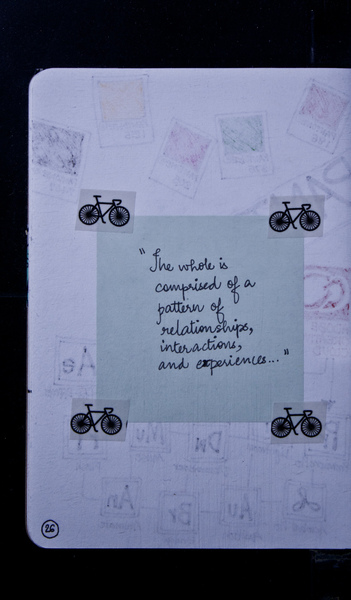 "The whole is
comprised of a
pattern of
relationships,
interactions,
and experiences..."
26